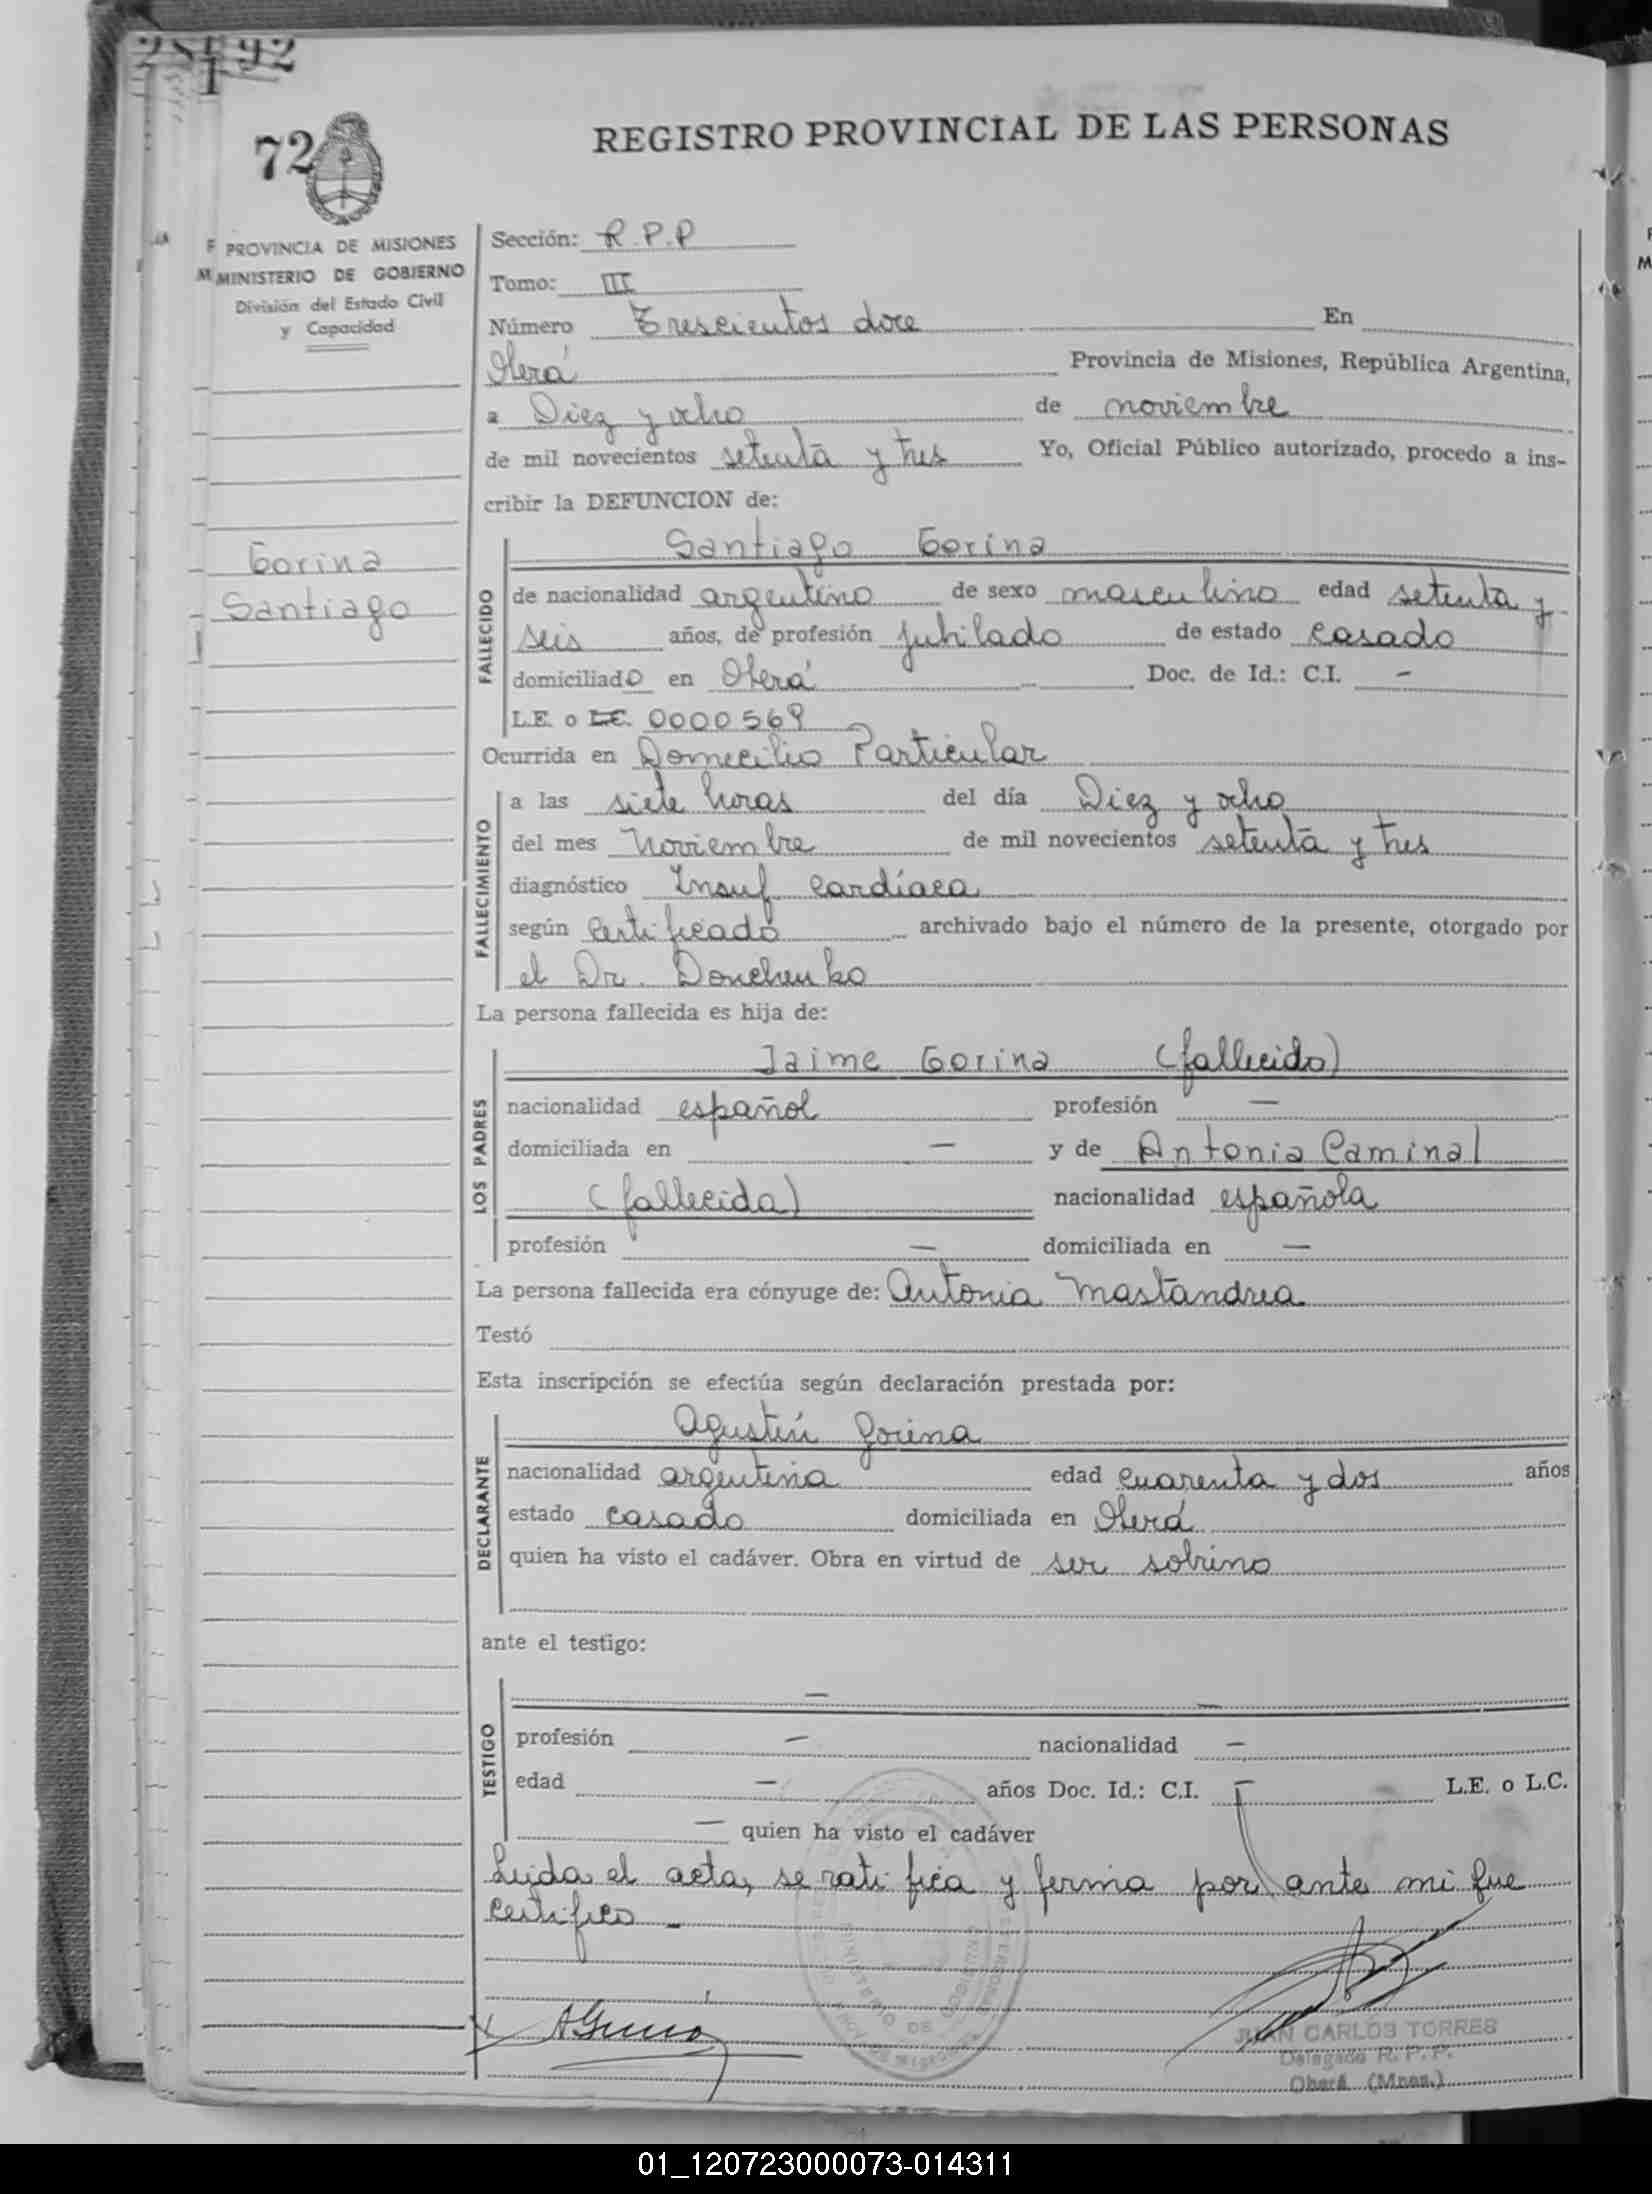 72
REGISTRO PROVINCIAL DE LAS PERSONAS
PROVINCIA DE MISIONES
MINISTERIO DE GOBIERNO
División del Estado Civil
y Capacidad
Gorina
Santiago
Sección: R.P.P
Tomo: III
Número Trescientos doce En
Oberá Provincia de Misiones, República Argentina,
a Diez y ocho de noviembre
de mil novecientos setenta y tres Yo, Oficial Público autorizado, procedo a ins-
cribir la DEFUNCION de:
FALLECIDO
Santiago Gorina
de nacionalidad argentino de sexo masculino edad setenta y
seis años, de profesión jubilado de estado casado
domiciliado en Oberá Doc. de Id.: C.I. -
L.E. o L.C. 0000569
Ocurrida en Domicilio Particular
FALLECIMIENTO
a las siete horas del día Diez y ocho
del mes Noviembre de mil novecientos setenta y tres
diagnóstico Insuf Cardíaca
según certificado archivado bajo el número de la presente, otorgado por
el Dr. Donchenko
La persona fallecida es hija de:
LOS PADRES
Jaime Gorina (fallecido)
nacionalidad español profesión -
domiciliada en - y de Antonia Caminal
(fallecida) nacionalidad española
profesión - domiciliada en -
La persona fallecida era cónyuge de: Antonia Mastandrea
Testó
Esta inscripción se efectúa según declaración prestada por:
DECLARANTE
Agustín Gorina
nacionalidad argentina edad cuarenta y dos años
estado casado domiciliada en Oberá
quien ha visto el cadáver. Obra en virtud de ser sobrino
ante el testigo:
TESTIGO
- -
profesión - nacionalidad -
edad - años Doc. Id.: C.I. - L.E. o L.C.
- quien ha visto el cadáver
Leida el acta, se ratifica y firma por ante mi que
certifico -
MINISTERIO DE GOBIERNO
AGorina
JUAN CARLOS TORRES
Delegado R. P. P.
Oberá (Mnes.)
01_120723000073-014311